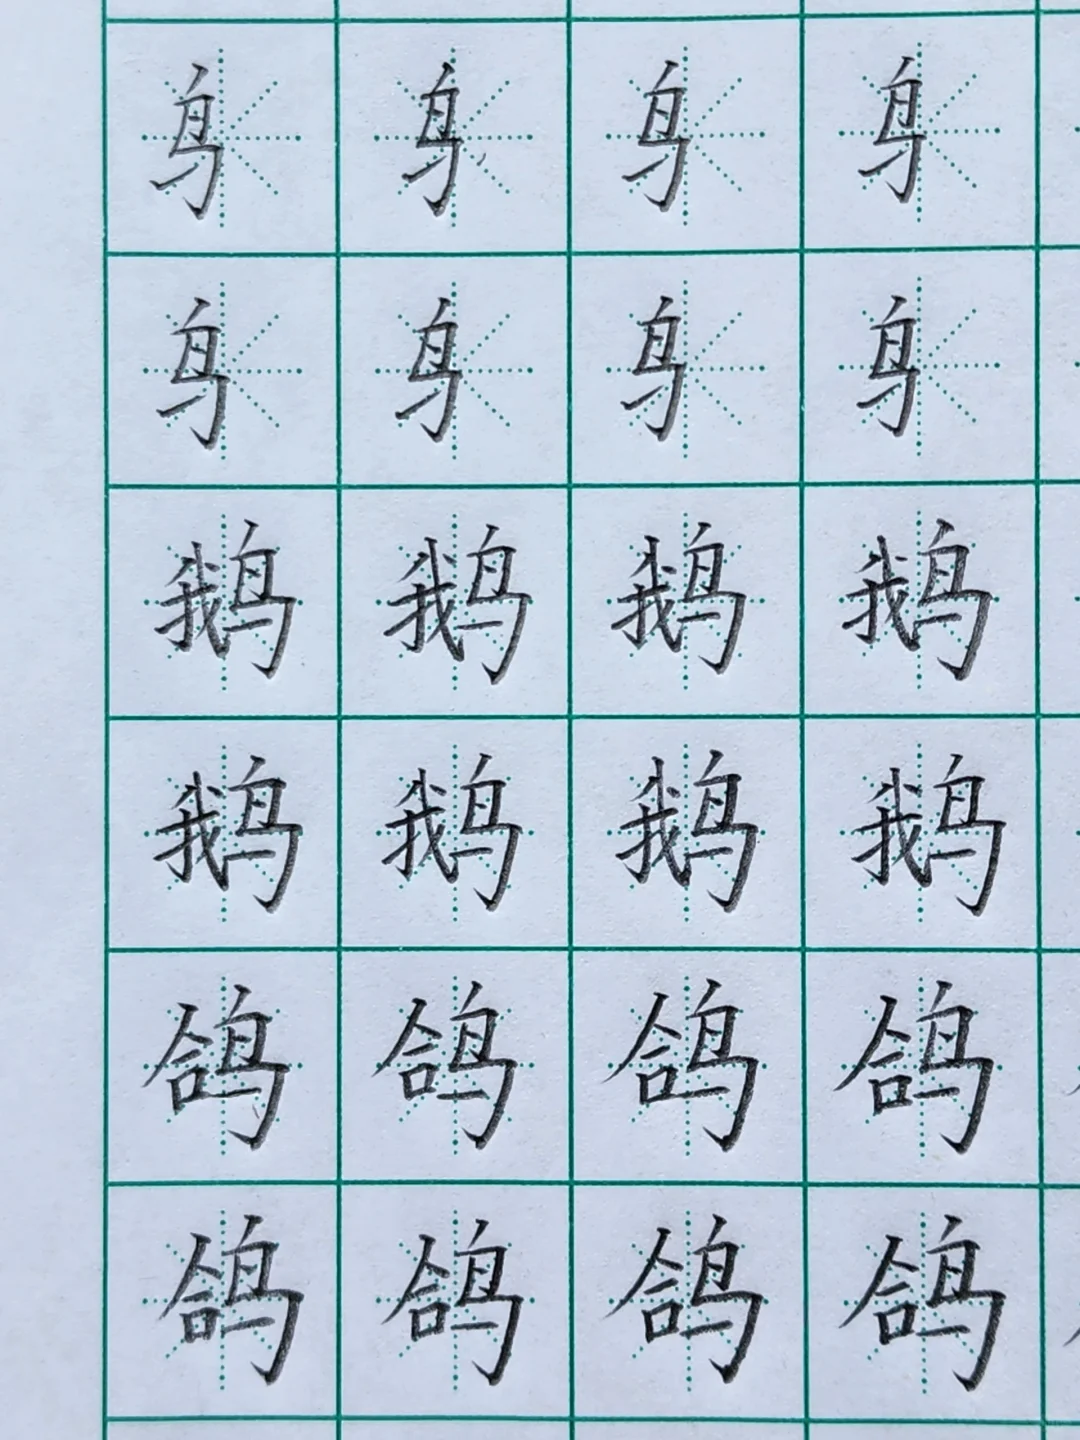 鸟 鸟 鸟 鸟
鸟 鸟 鸟 鸟
鹅 鹅 鹅 鹅
鹅 鹅 鹅 鹅
鸽 鸽 鸽 鸽
鸽 鸽 鸽 鸽